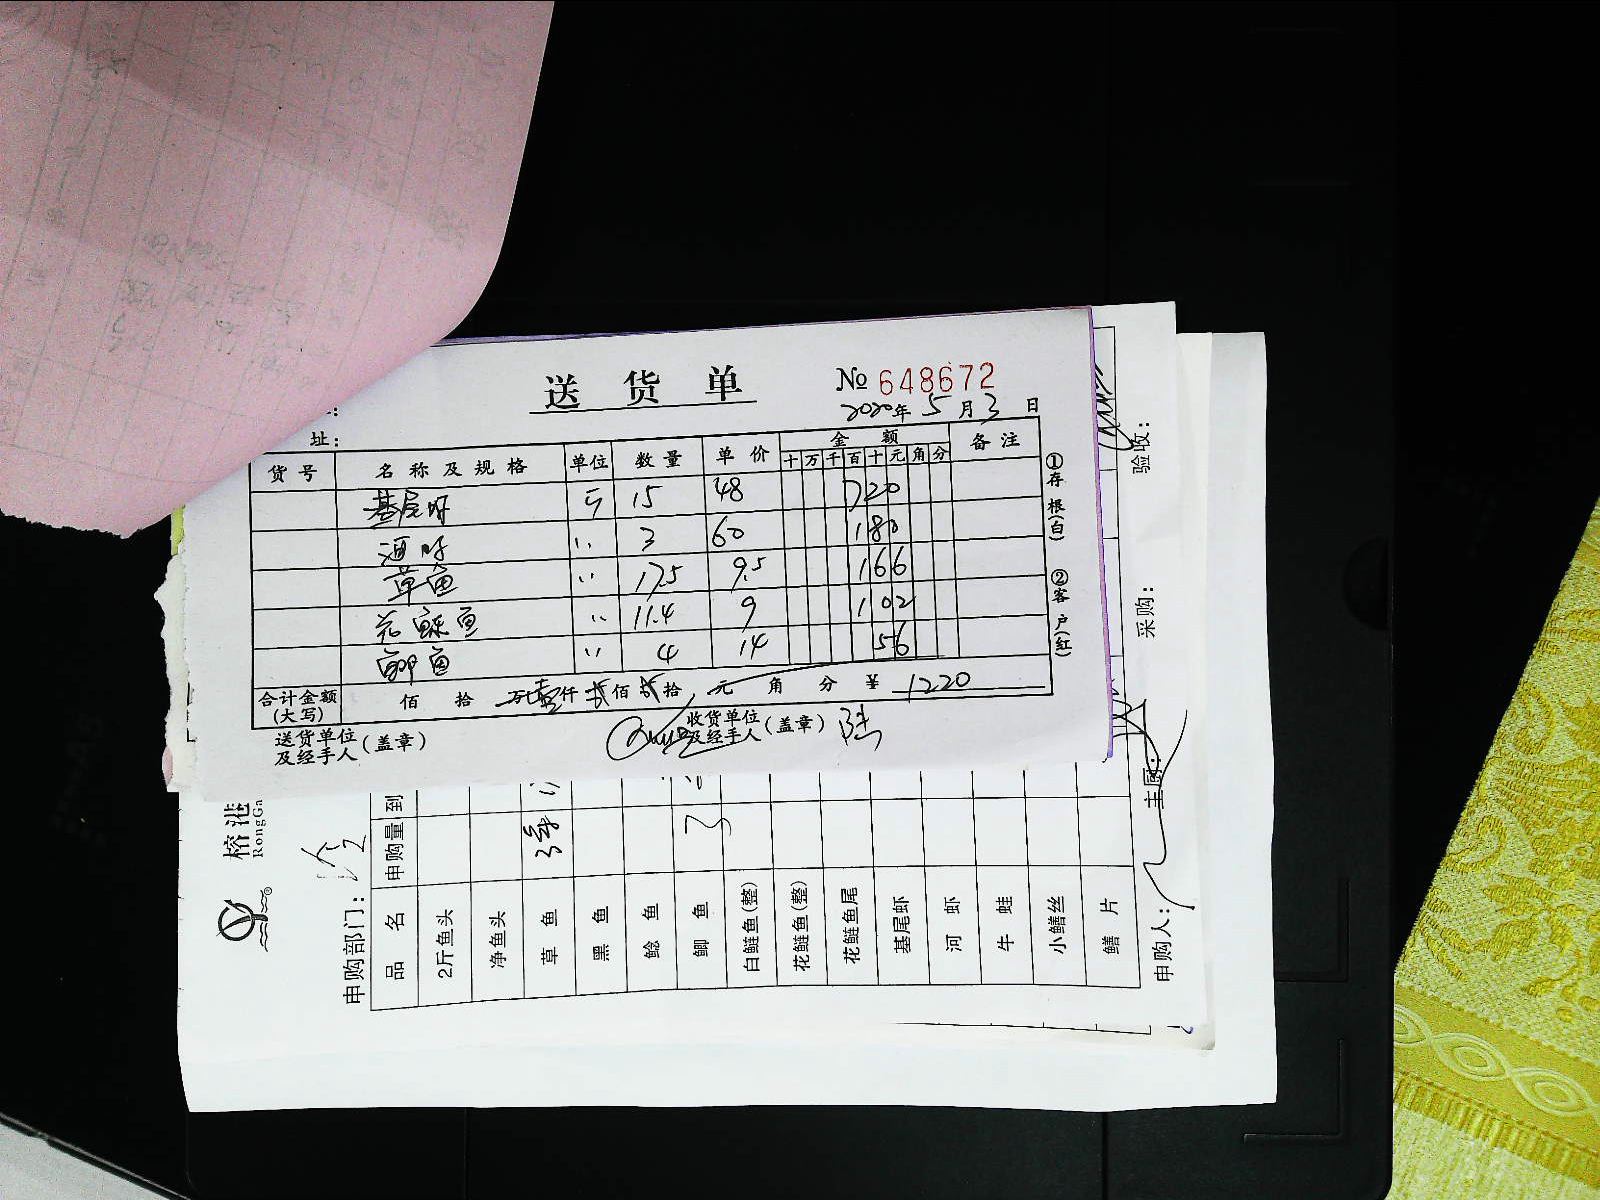 送货单 № 648672
2020年 5月 3日
址：
货号 名称及规格 单位 数量 单价 金额 备注
十 万 千 百 十 元 角 分
基尾虾 斤 15 48 720
河虾 〃 3 60 180
草鱼 〃 17.5 9.5 166
花鲢鱼 〃 11.4 9 102
鲫鱼 〃 4 14 56
合计金额(大写) 佰 拾 万壹仟贰佰贰拾 元 角 分 ¥ 1220
送货单位及经手人(盖章) 收货单位及经手人(盖章) 陆
①存根(白) ②客户(红)
榕港
RongGa
申购部门：冷
品名 申购量 到
2斤鱼头
净鱼头
草鱼 3条
黑鱼
鲶鱼
鲫鱼 3
白鲢鱼(整)
花鲢鱼(整)
花鲢鱼尾
基尾虾
河虾
牛蛙
小鳝丝
鳝片
申购人： 主厨： 采购： 验收：